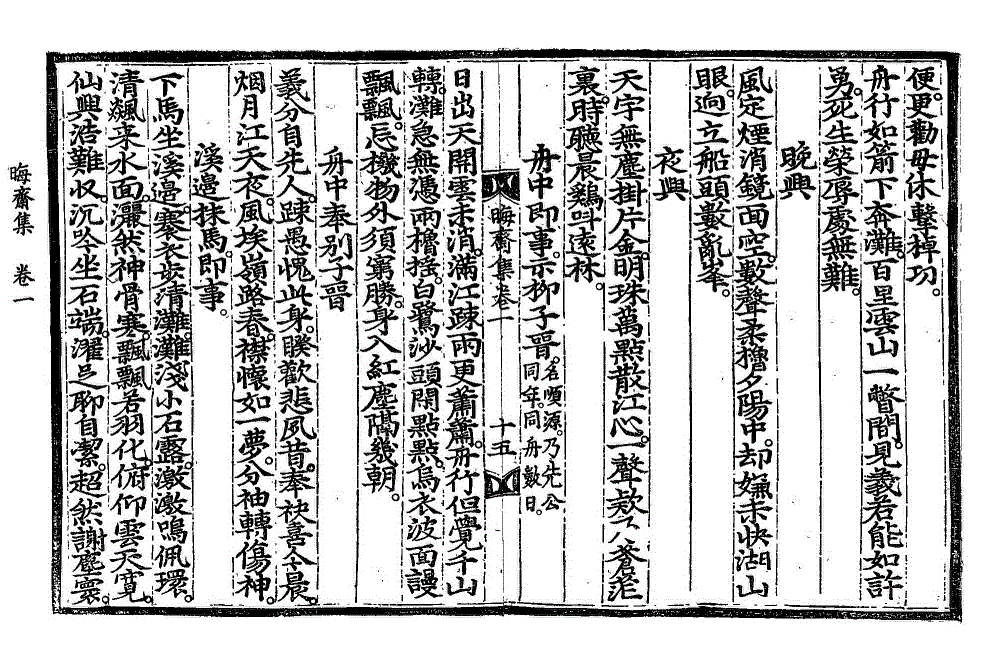 便更勸毋休擊棹功。
舟行如箭下奔灘。百里雲山一瞥間。見義若能如許
勇。死生榮辱處無難。
晚興
風定煙消鏡面空。數聲柔櫓夕陽中。却嫌未快湖山
眼。逈立船頭數亂峯。
夜興
天宇無塵掛片金。明珠萬點散江心。一聲欸乃蒼茫
裏。時聽晨鷄叫遠林。
舟中即事。示柳子晉。名順源。乃先公同年。同舟數日。
晦齋集卷一 十五
日出天開雲未消。滿江疎雨更蕭蕭。舟行但覺千山
轉。灘急無憑兩櫓搖。白鷺沙頭閑點點。烏衣波面謾
飄飄。忘機物外須窮勝。身入紅塵隔幾朝。
舟中奉別子晉
義分自先人。疎愚愧此身。睽歡悲夙昔。奉袂喜今晨。
烟月江天夜。風埃嶺路春。襟懷如一夢。分袖轉傷神。
溪邊秣馬。即事。
下馬坐溪邊。褰衣步淸灘。灘淺小石露。激激鳴佩環。
清飆来水面。灑然神骨寒。飄飄若羽化。俯仰雲天寬。
仙興浩難収。沉吟坐石端。濯足聊自潔。超然謝塵寰。
晦齋集 卷一